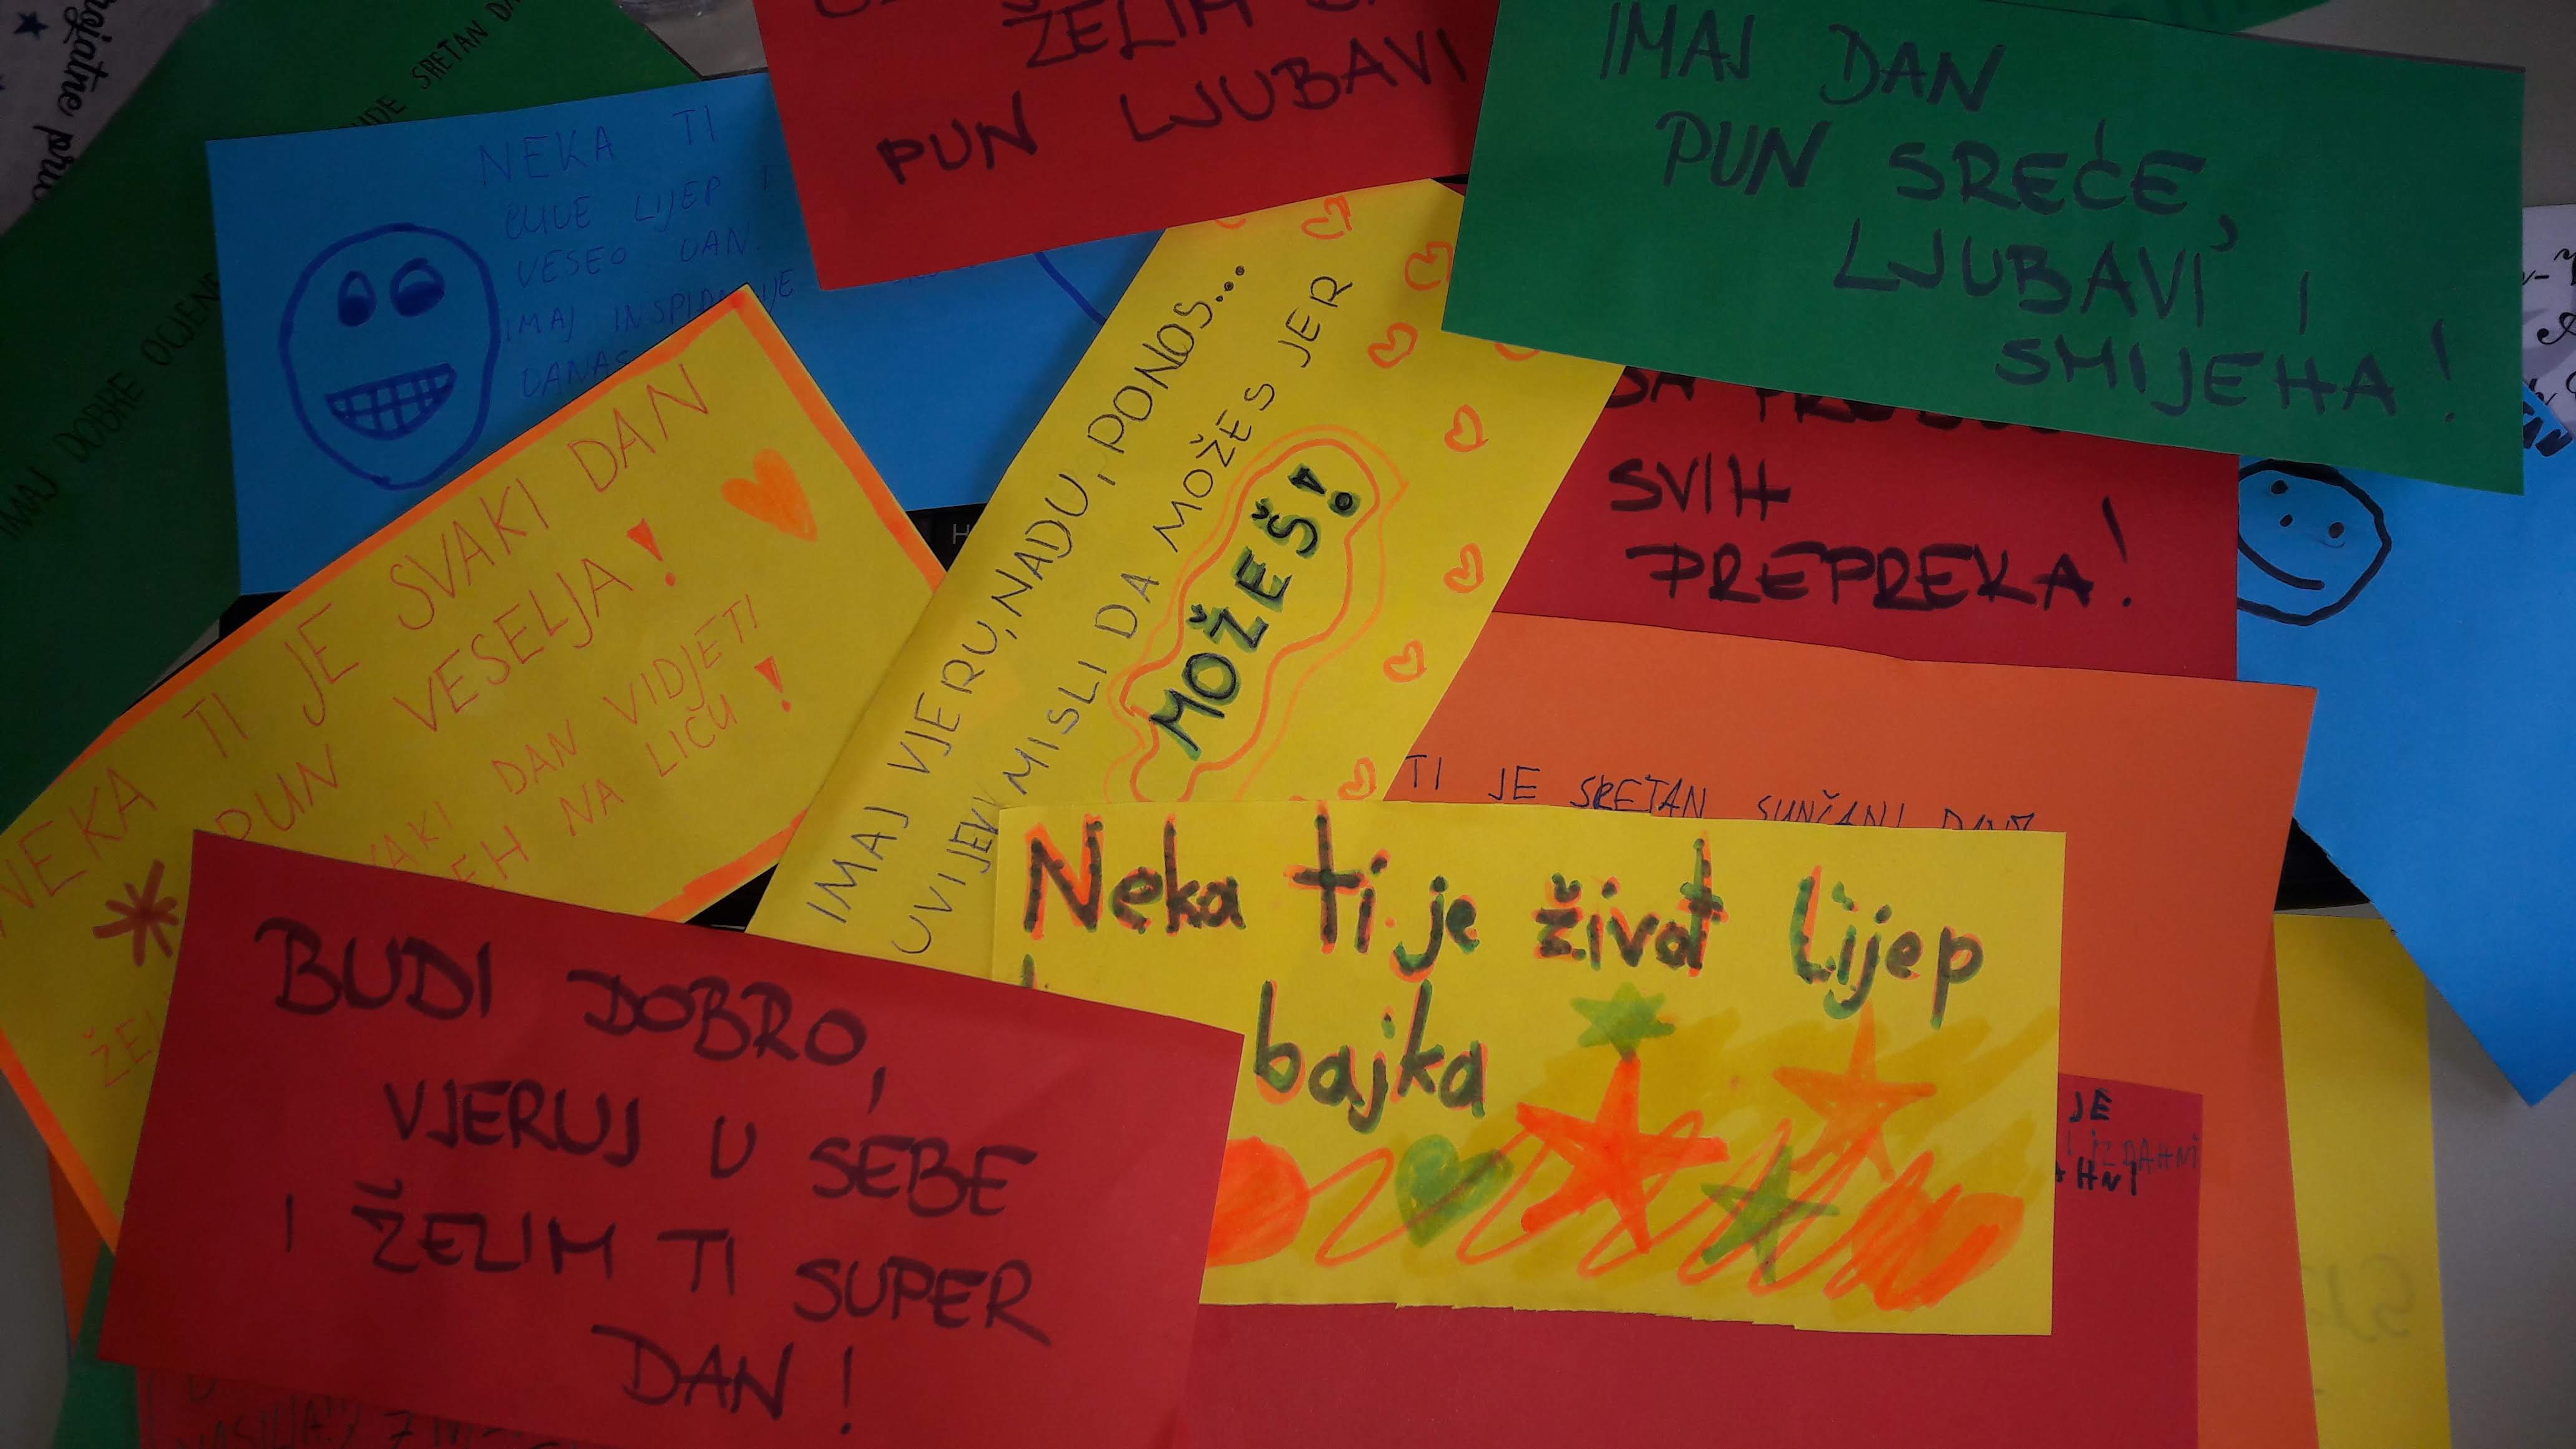 SRETAN
IMAJ DOBRE OCJENE
NEKA TI
BUDE LIJEP I
VESEO DAN.
IMAJ
DANAS
ŽELIM
PUN LJUBAVI
IMAJ DAN
PUN SREĆE,
LJUBAVI I
SMIJEHA!
SVIH
PREPREKA!
NEKA TI JE SVAKI DAN
PUN VESELJA!
DAN VIDJETI
NA LICU!
IMAJ VJERU, NADU, PONOS...
UVIJEK MISLI DA MOŽEŠ JER
MOŽEŠ!
TI JE SRETAN SUNČANI DAN
Neka ti je život lijep
bajka
BUDI DOBRO,
VJERUJ U SEBE
I ŽELIM TI SUPER
DAN!
JE
I IZDAHNI